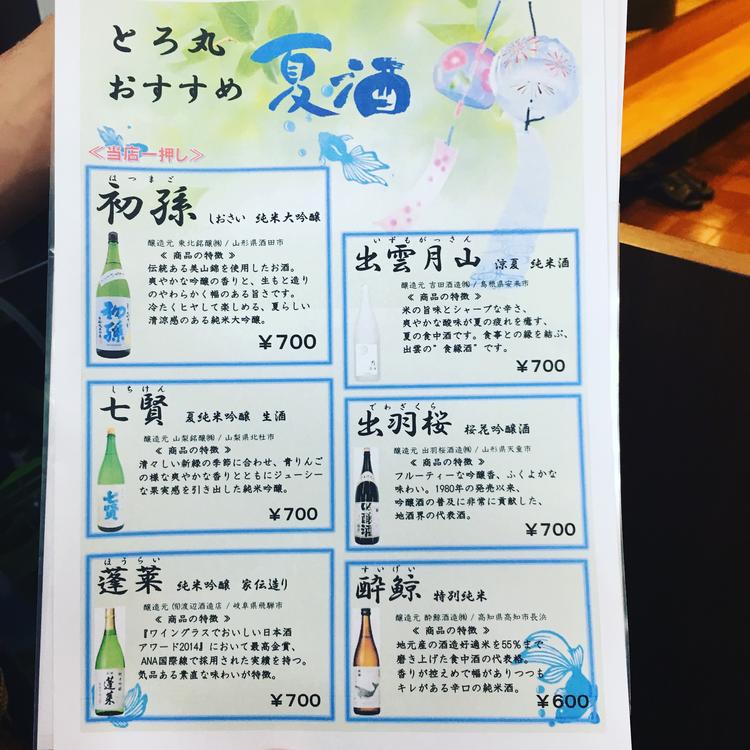 とろ丸
おすすめ
夏酒
≪当店一押し≫
はつまご
初孫 しおさい 純米大吟醸
醸造元 東北銘醸㈱ / 山形県酒田市
≪ 商品の特徴 ≫
伝統ある美山錦を使用したお酒。
爽やかな吟醸の香りと、生もと造り
のやわらかく幅のある旨さです。
冷たくヒヤして楽しめる、夏らしい
清涼感のある純米大吟醸。
￥700
初孫
いずもがっさん
出雲月山 涼夏 純米酒
醸造元 吉田酒造㈱ / 島根県安来市
≪ 商品の特徴 ≫
米の旨味とシャープな辛さ、
爽やかな酸味が夏の疲れを癒す、
夏の食中酒です。食事との縁を結ぶ、
出雲の”食縁酒”です。
￥700
しちけん
七賢 夏純米吟醸 生酒
醸造元 山梨銘醸㈱ / 山梨県北杜市
≪ 商品の特徴 ≫
清々しい新緑の季節に合わせ、青りんご
の様な爽やかな香りとともにジューシー
な果実感を引き出した純米吟醸。
￥700
七賢
でわざくら
出羽桜 桜花吟醸酒
醸造元 出羽桜酒造㈱ / 山形県天童市
≪ 商品の特徴 ≫
フルーティーな吟醸香、ふくよかな
味わい。1980年の発売以来、
吟醸酒の普及に非常に貢献した、
地酒界の代表酒。
￥700
ほうらい
蓬莱 純米吟醸 家伝造り
醸造元 ㈲渡辺酒造店 / 岐阜県飛騨市
≪ 商品の特徴 ≫
『ワイングラスでおいしい日本酒
アワード2014』において最高金賞、
ANA国際線で採用された実績を持つ。
気品ある素直な味わいが特徴。
￥700
蓬莱
すいげい
酔鯨 特別純米
醸造元 酔鯨酒造㈱ / 高知県高知市長浜
≪ 商品の特徴 ≫
地元産の酒造好適米を55％まで
磨き上げた食中酒の代表格。
香りが控えめで幅がありつつも
キレがある辛口の純米酒。
￥600